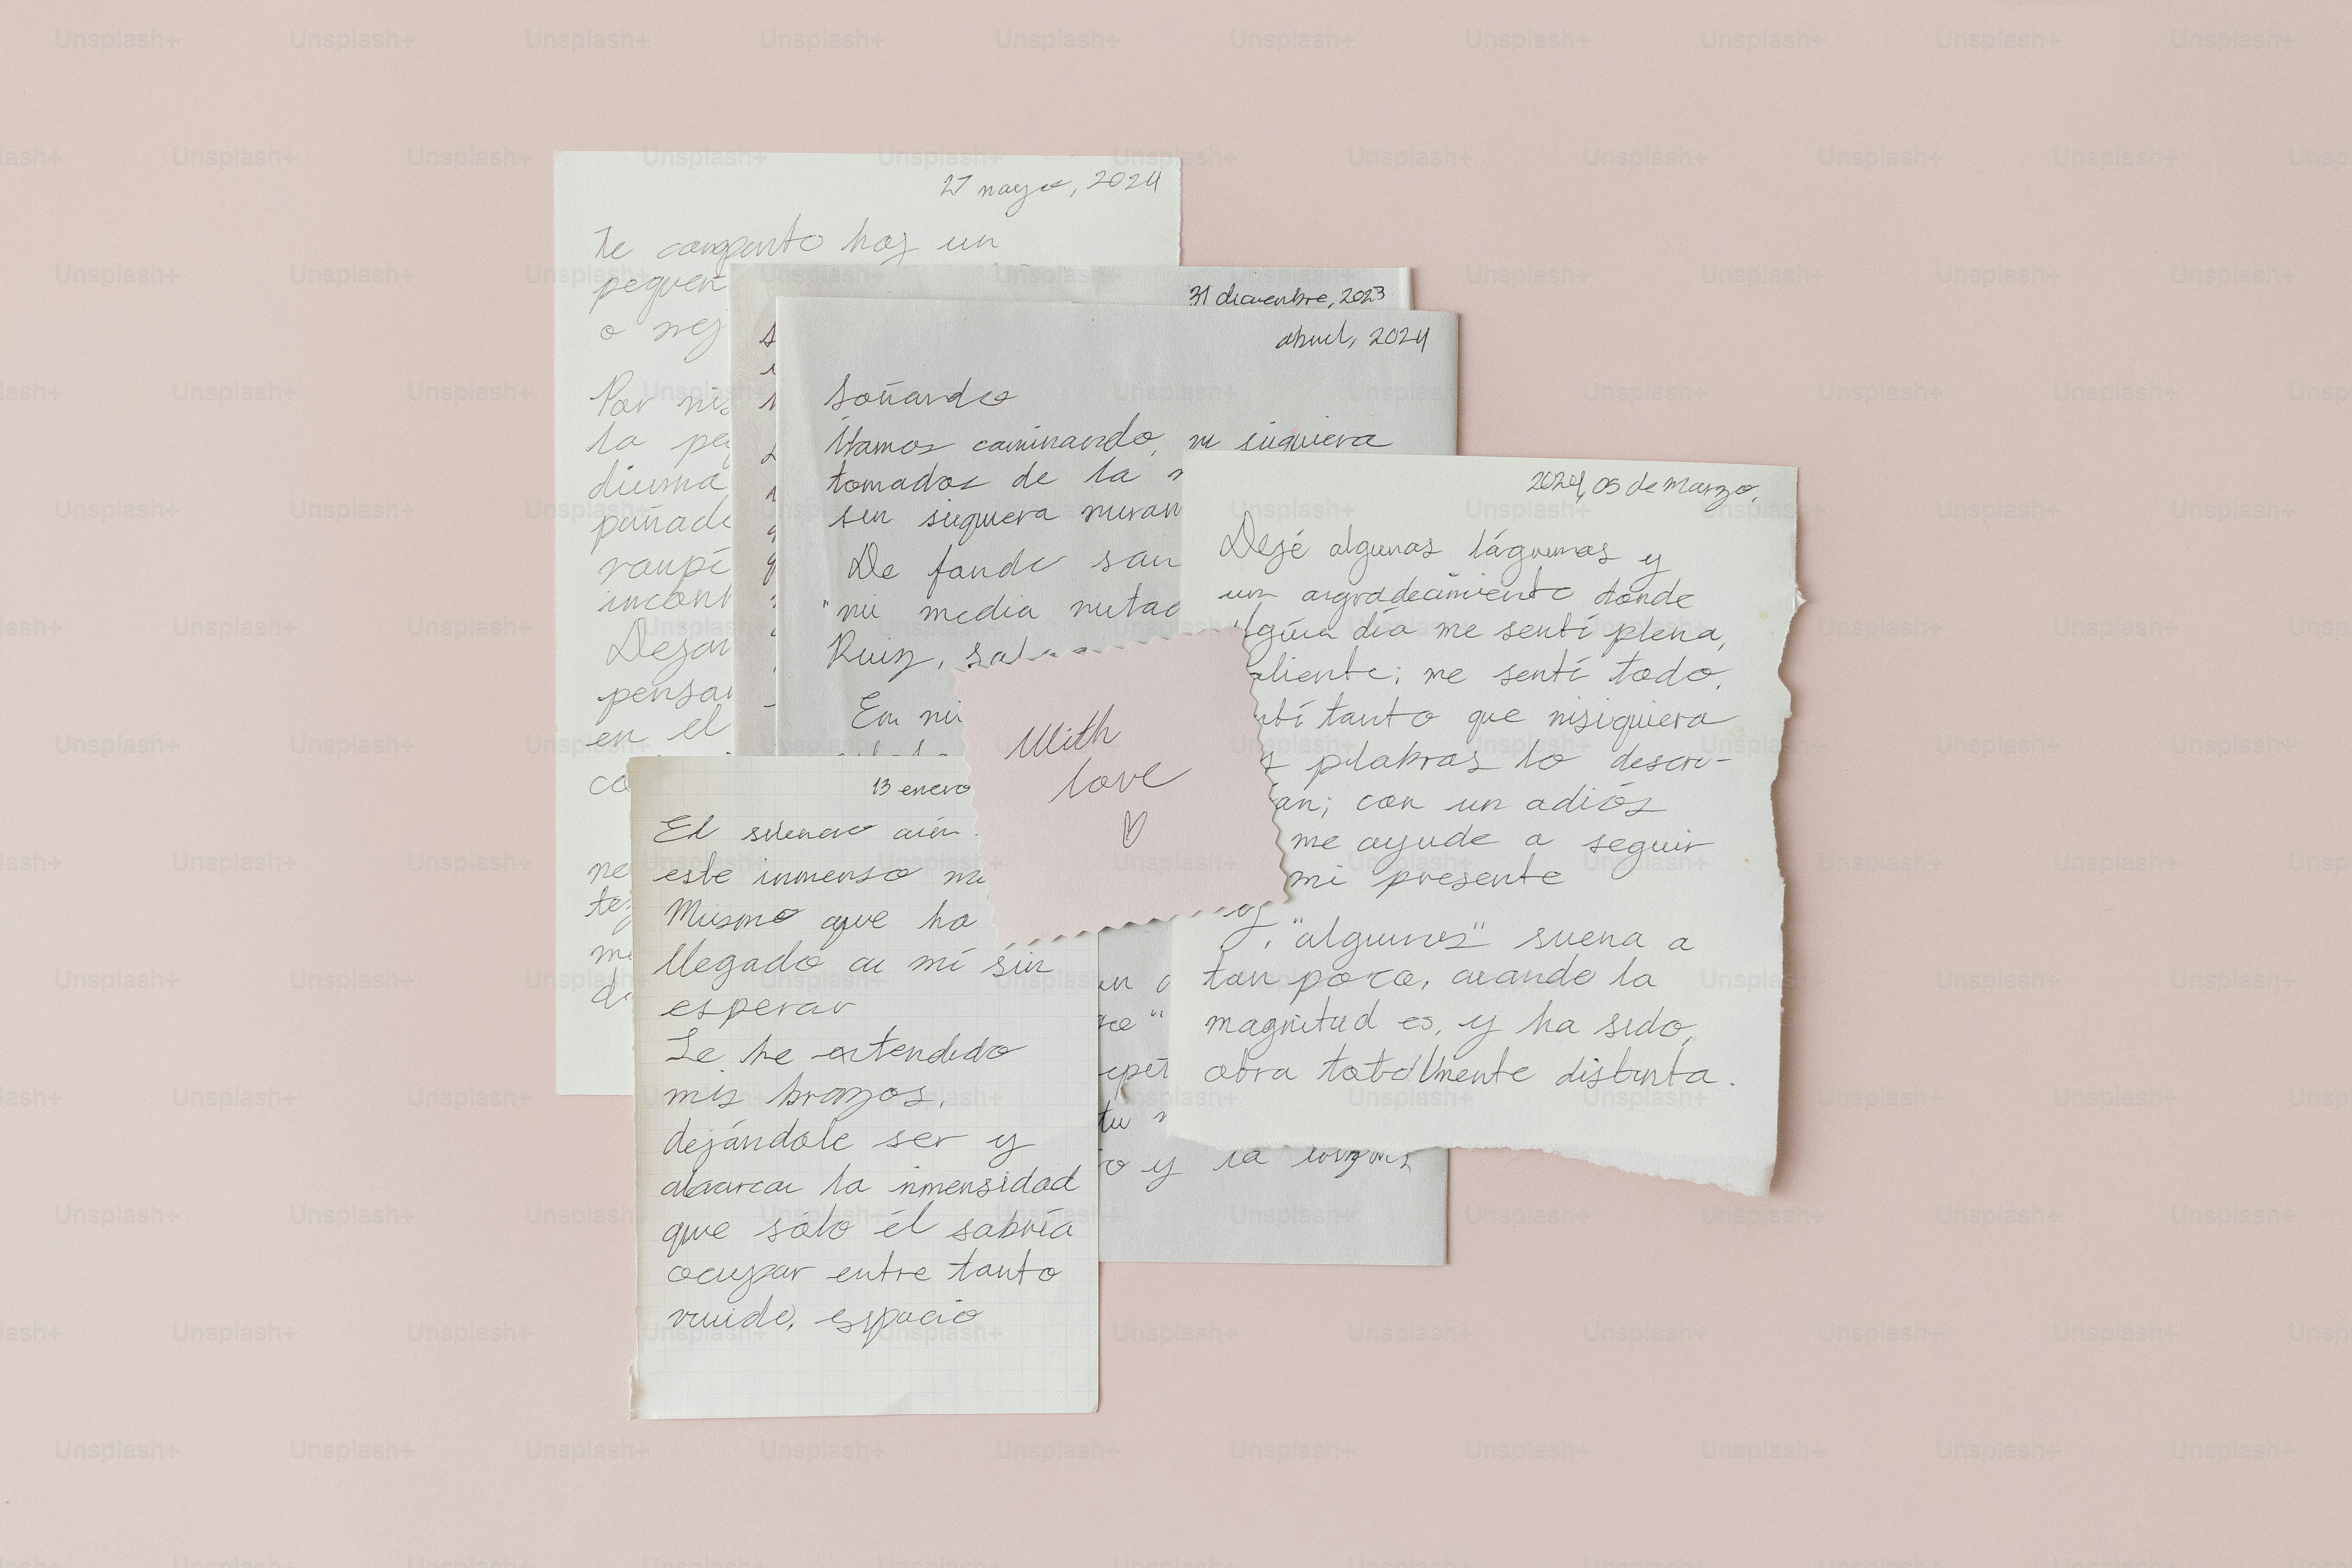 27 mayo, 2024
Te comparto hoy un
pequeñ
o mej
Por mis
la pe
diurna
puñado
incont
Dejar
pensar
en el
co
ne
te
me
de
31 diciembre, 2023
abril, 2024
Soñando
Íbamos caminando, ni siquiera
tomados de la m
sin siquiera miran
De fondo son
"mi media mitad
Ruiz, sal
En mi
2024, 05 de marzo,
Dejé algunas lágrimas y
un agradecimiento donde
algún día me sentí plena,
aliente; me sentí todo,
ntí tanto que nisiquiera
s palabras lo descri-
an; con un adiós
me ayude a seguir
mi presente
oy, "algunos" suena a
tan poco, cuando la
magnitud es, y ha sido,
obra totalmente distinta.
With
love
13 enero
El silencio aún
este inmenso ma
Mismo que ha
llegado a mí sin
esperar
Le he extendido
mis brazos,
dejándole ser y
abarcar la inmensidad
que sólo él sabría
ocupar entre tanto
ruido, espacio
un
epet
tu m
o y la